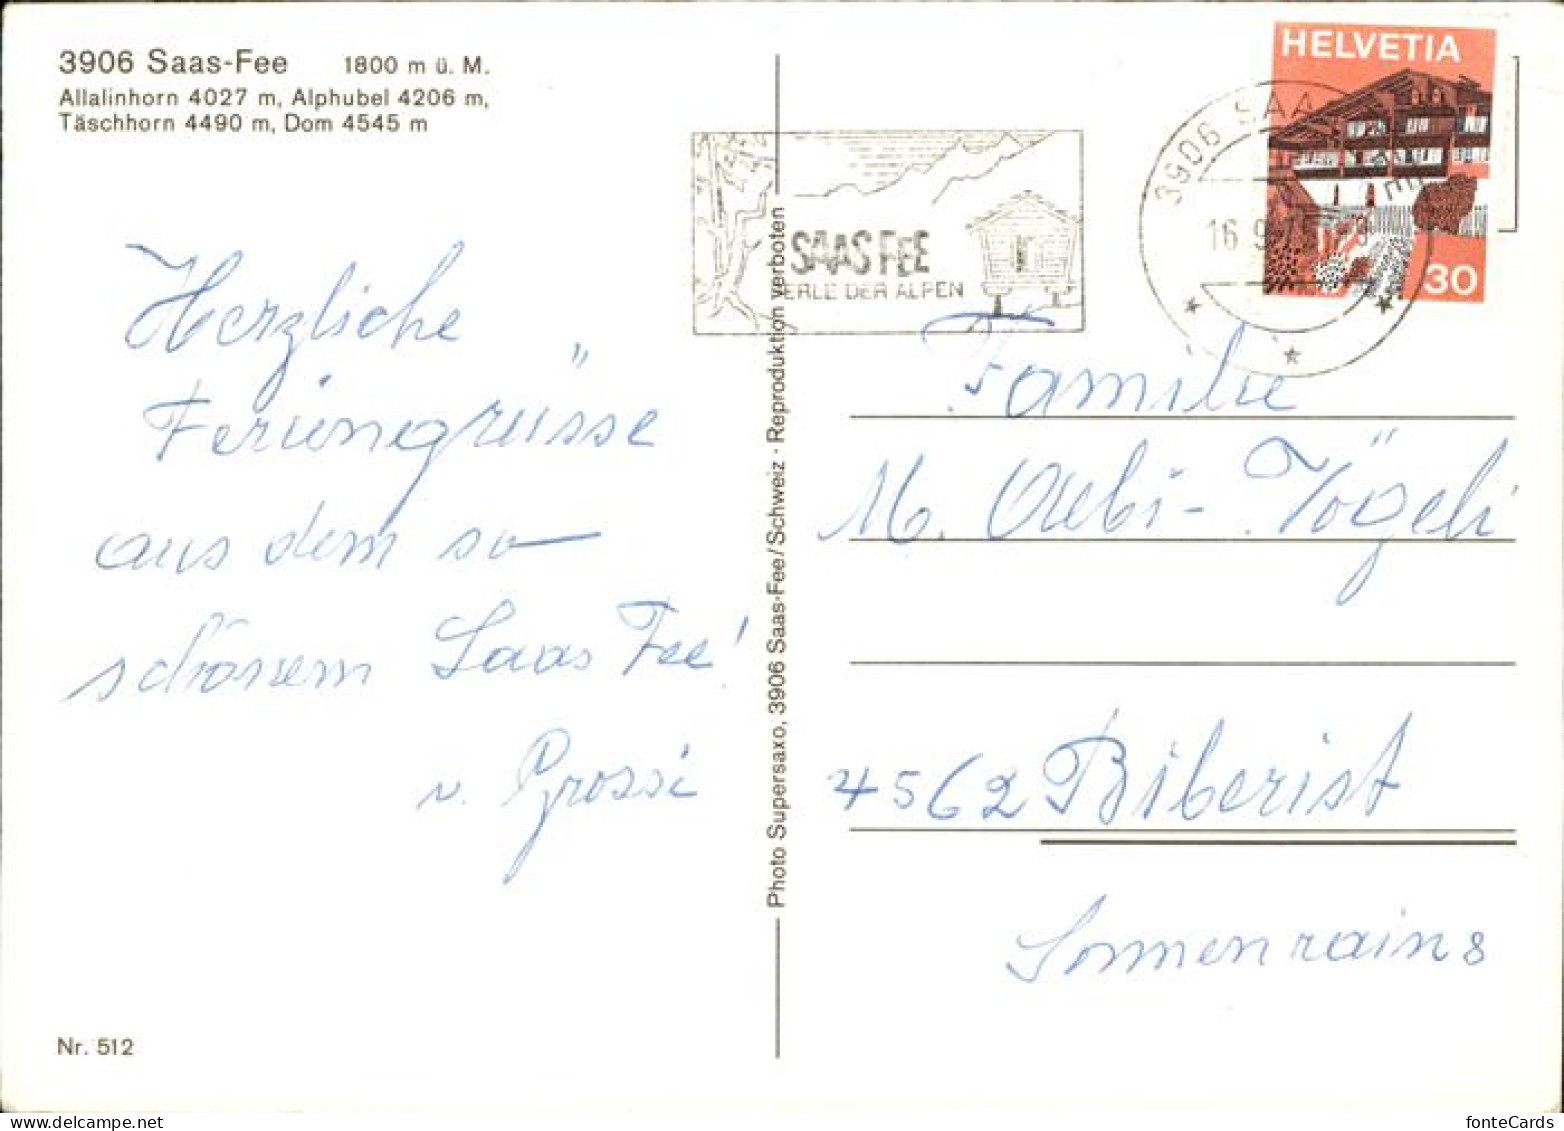 3906 Saas-Fee 1800 m ü. M.
Allalinhorn 4027 m, Alphubel 4206 m,
Täschhorn 4490 m, Dom 4545 m
HELVETIA
30
3906 SAAS-FEE
16.9.75
SAAS FEE
PERLE DER ALPEN
Herzliche
Feriengrüsse
aus dem so
schönen Saas Fee!
v. Grossi
Photo Supersaxo, 3906 Saas-Fee/Schweiz · Reproduktion verboten
Familie
M. Aebi-Vögeli
4562 Biberist
Sonnenrain 8
Nr. 512
fonteCards